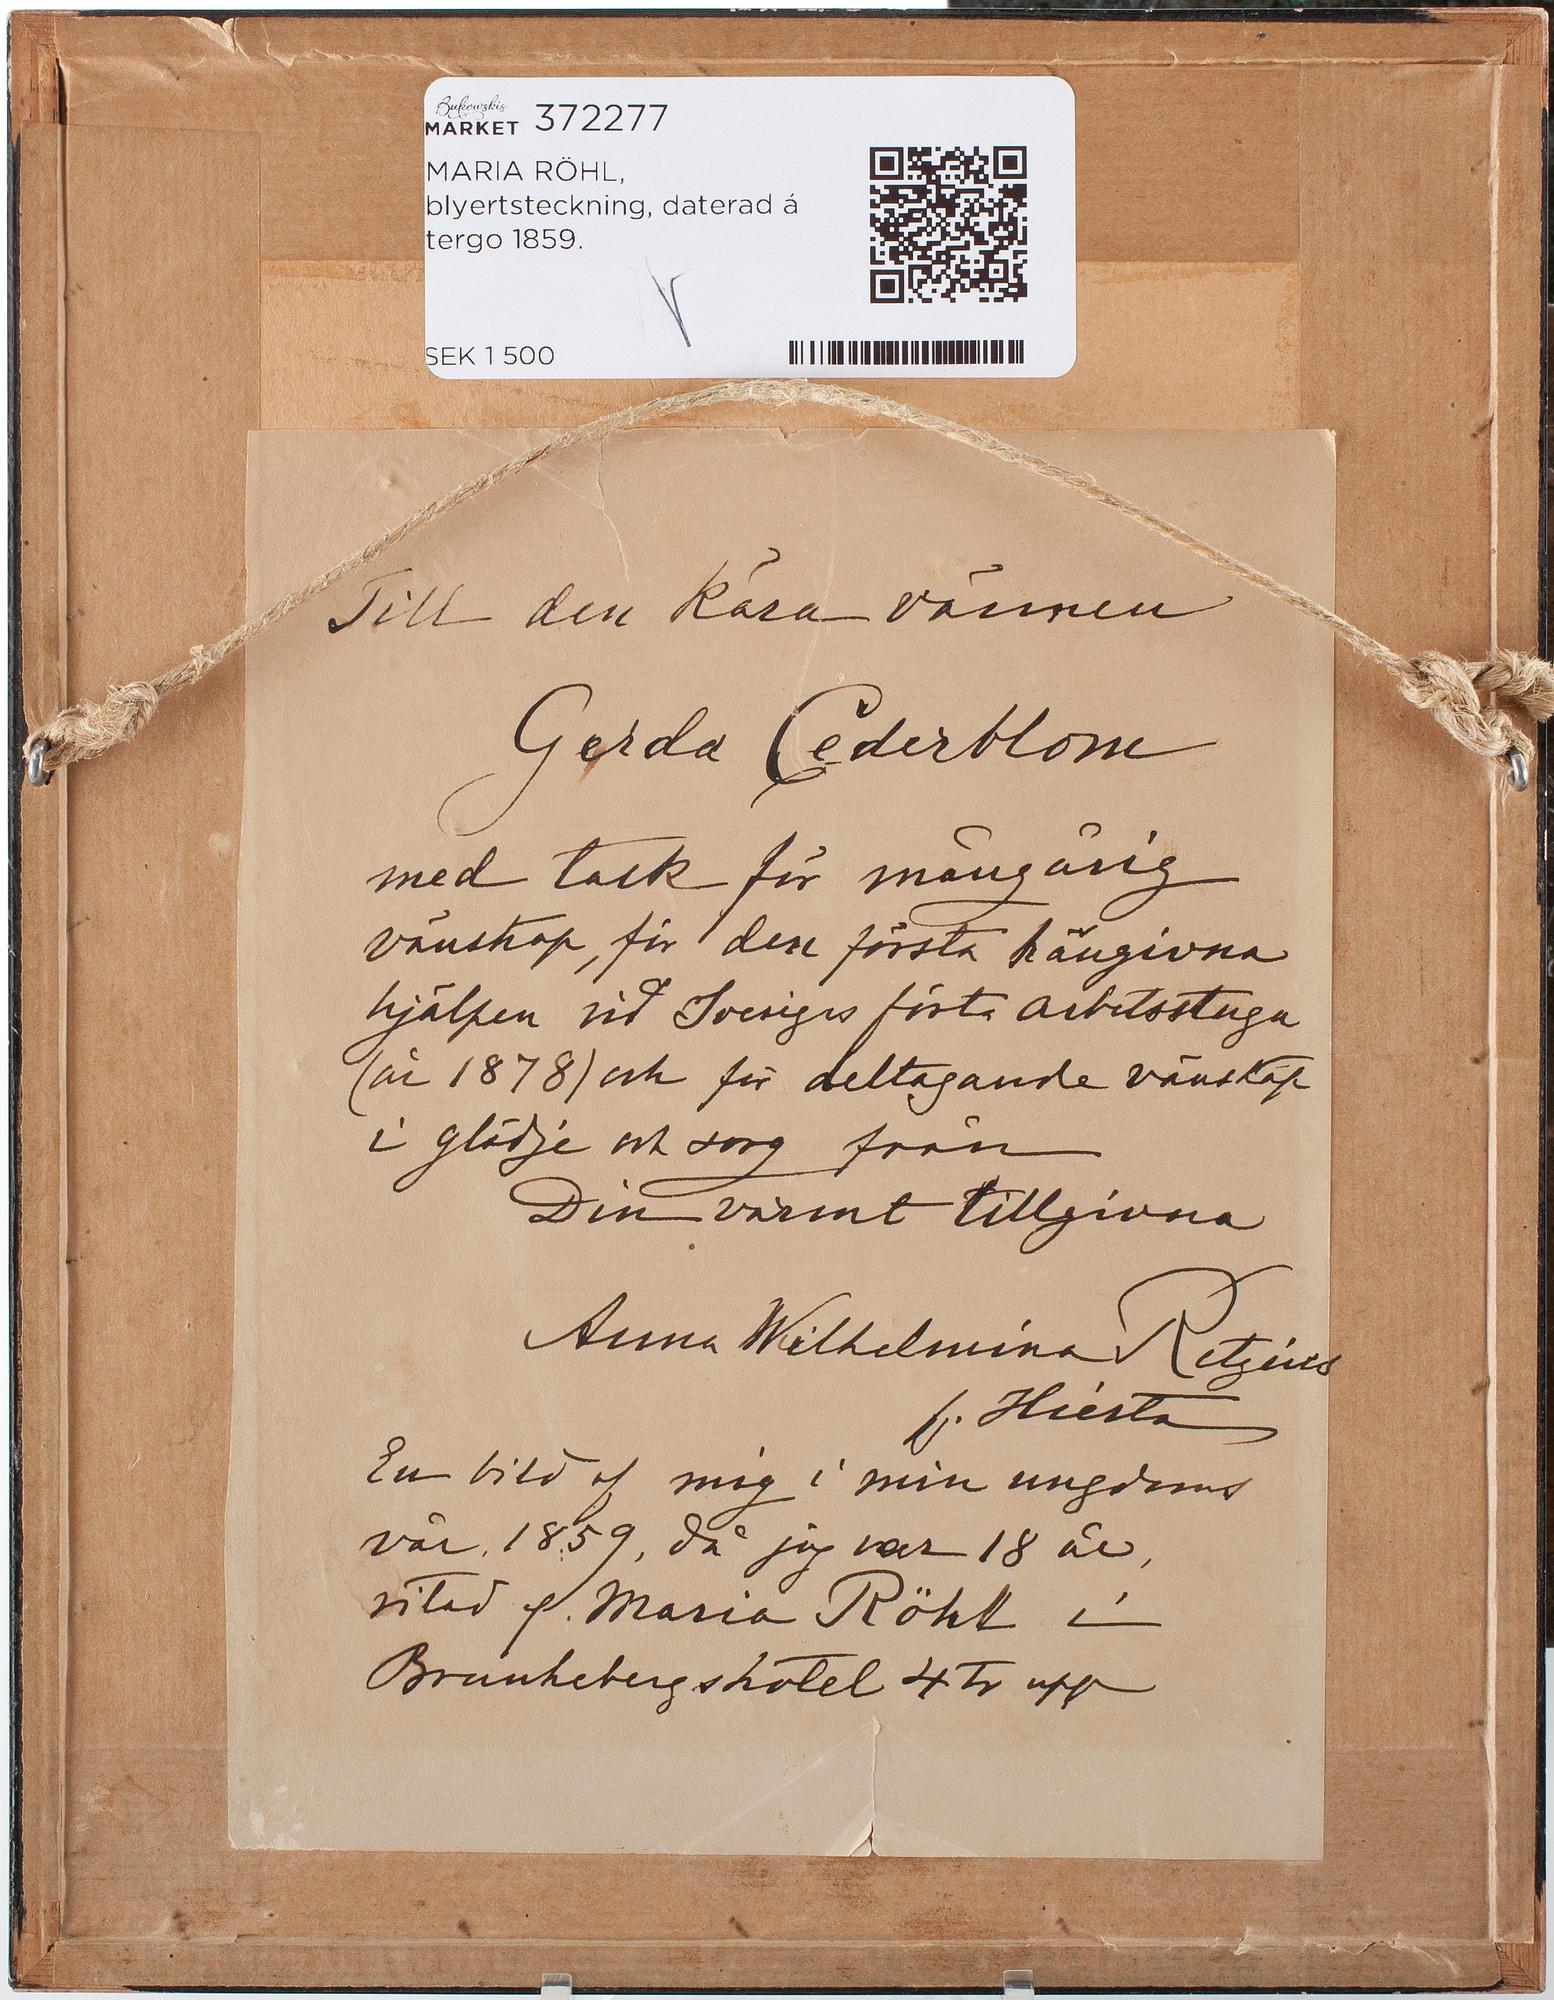 Bukowskis
MARKET 372277
MARIA RÖHL,
blyertsteckning, daterad á
tergo 1859.
SEK 1 500
Till den kära vännen
Gerda Cederblom
med tack för mångårig
vänskap, för den första hängivna
hjälpen vid Sveriges första arbetsstuga
(år 1878) och för deltagande vänskap
i glädje och sorg från
Din varmt tillgivna
Anna Wilhelmina Retzius
f. Hierta
En bild af mig i min ungdoms
vår. 1859, då jag var 18 år,
ritad af. Maria Röhl i
Brunkebergshotel 4 tr upp